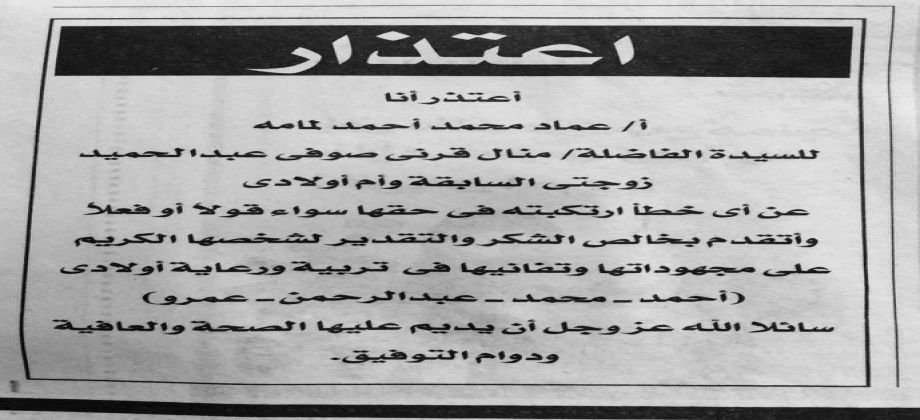 اعتذار
أعتذر أنا
أ/ عماد محمد أحمد لمامه
للسيدة الفاضلة/ منال قرنى صوفى عبدالحميد
زوجتى السابقة وأم أولادى
عن أى خطأ ارتكبته فى حقها سواء قولا أو فعلا
وأتقدم بخالص الشكر والتقدير لشخصها الكريم
على مجهوداتها وتفانيها فى تربية ورعاية أولادى
(أحمد ـ محمد ـ عبدالرحمن ـ عمرو)
سائلا الله عز وجل أن يديم عليها الصحة والعافية
ودوام التوفيق.